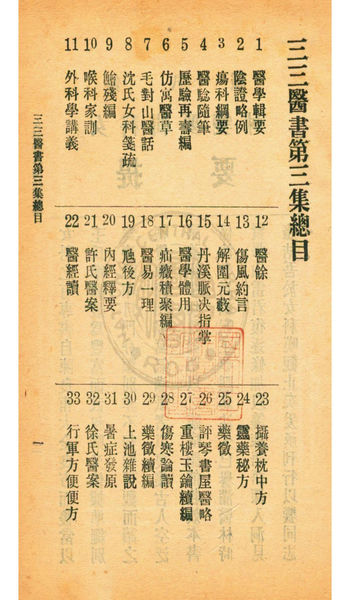 三三醫書第三集總目
1 醫學輯要
2 陰證略例
3 瘍科綱要
4 醫驗隨筆
5 歷驗再壽編
6 仿寓醫草
7 毛對山醫話
8 沈氏女科箋疏
9 鱠殘編
10 喉科家訓
11 外科學講義
12 醫餘
13 傷風約言
14 解圍元藪
15 丹溪脈决指掌
16 醫學體用
17 疝癥積聚編
18 醫易一理
19 虺後方
20 內經釋要
21 許氏醫案
22 醫經讀
23 攝養枕中方
24 靈藥秘方
25 藥徵
26 評琴書屋醫略
27 重樓玉鑰續編
28 傷寒論讀
29 藥徵續編
30 上池雜說
31 暑症發原
32 徐氏醫案
33 行軍方便便方
三三醫書第三集總目 一